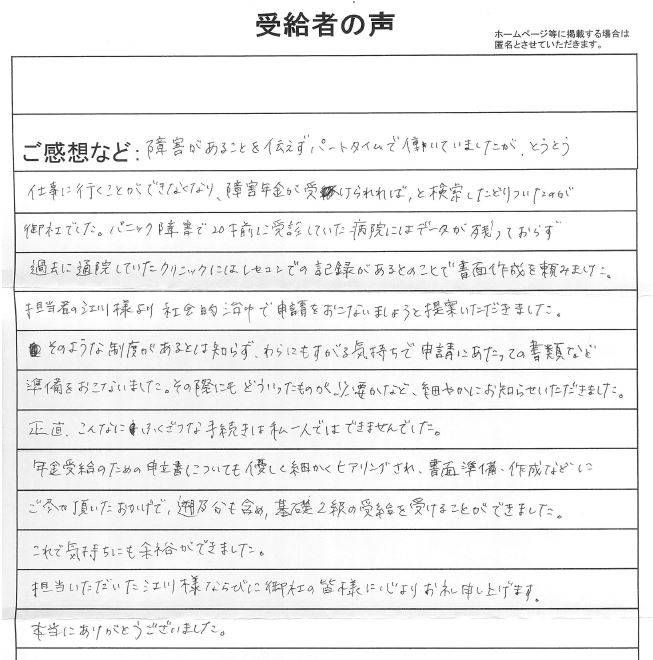 受給者の声
ホームページ等に掲載する場合は
匿名とさせていただきます。
ご感想など：障害があることを伝えずパートタイムで働いていましたが、とうとう
仕事に行くことができなくなり、障害年金が受けられれば、と検索したどりついたのが
御社でした。パニック障害で20才前に受診していた病院にはデータが残っておらず
過去に通院していたクリニックにはレセコンでの記録があるとのことで書面作成を頼みました。
担当者の江川様より社会的治ゆで申請をおこないましょうと提案いただきました。
そのような制度があるとは知らず、わらにもすがる気持ちで申請にあたっての書類など
準備をおこないました。その際にもどういったものが必要かなど、細やかにお知らせいただきました。
正直、こんなにふくざつな手続きは私一人ではできませんでした。
年金受給のための申立書についても優しく細かくヒアリングされ、書面準備・作成などに
ご尽力頂いたおかげで、遡及分も含め、基礎2級の受給を受けることができました。
これで気持ちにも余裕ができました。
担当いただいた江川様ならびに御社の皆様に心よりお礼申し上げます。
本当にありがとうございました。